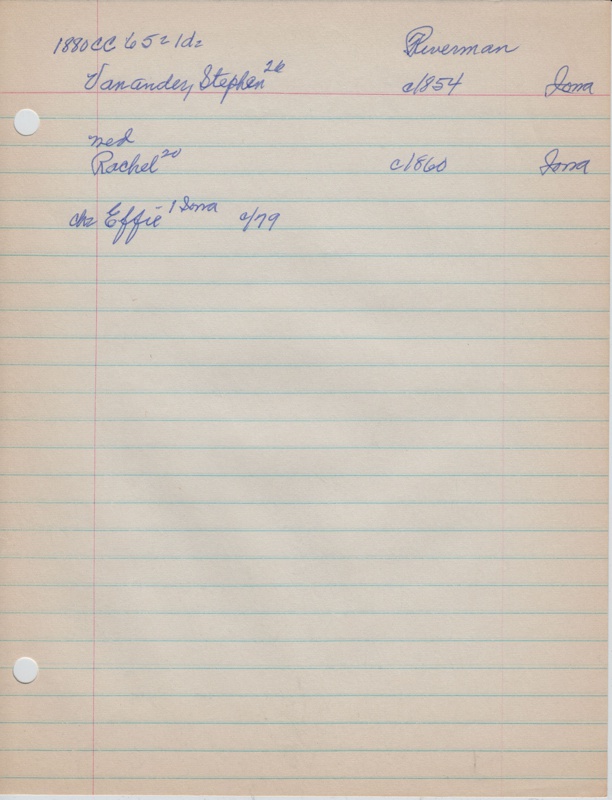 1880CC 652 1d2 Riverman
Vanandey, Stephen 26 c1854 Iowa
med
Rachel 20 c1860 Iowa
ch2 Effie 1 Iowa c/79